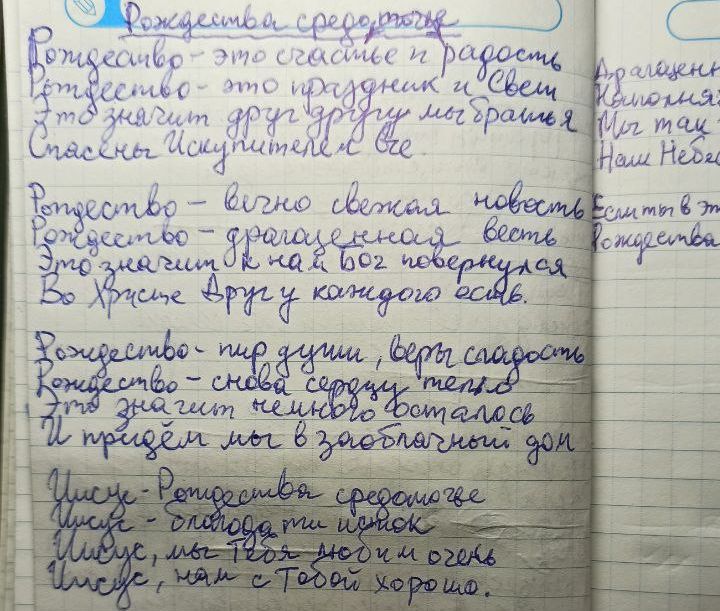 Рождества средоточье
Рождество - это счастье и радость
Рождество - это праздник и Свет
Это значит друг другу мы братья
Спасены Искупителем
Рождество - вечно свежая новость
Рождество - драгоценная весть
Это значит к нам Бог повернулся
Во Христе Друг у каждого есть.
Рождество - пир души, веры сладость
Рождество - снова сердцу тепло
Это значит немного осталось
И придём мы в заоблачный дом
Иисус - Рождества средоточье
Иисус - благодати исток
Иисус, мы Тебя любим очень
Иисус, нам с Тобой хорошо.
Драгоценн
Наполня
Мы так
Наш Небес
Если ты в эт
Рождества